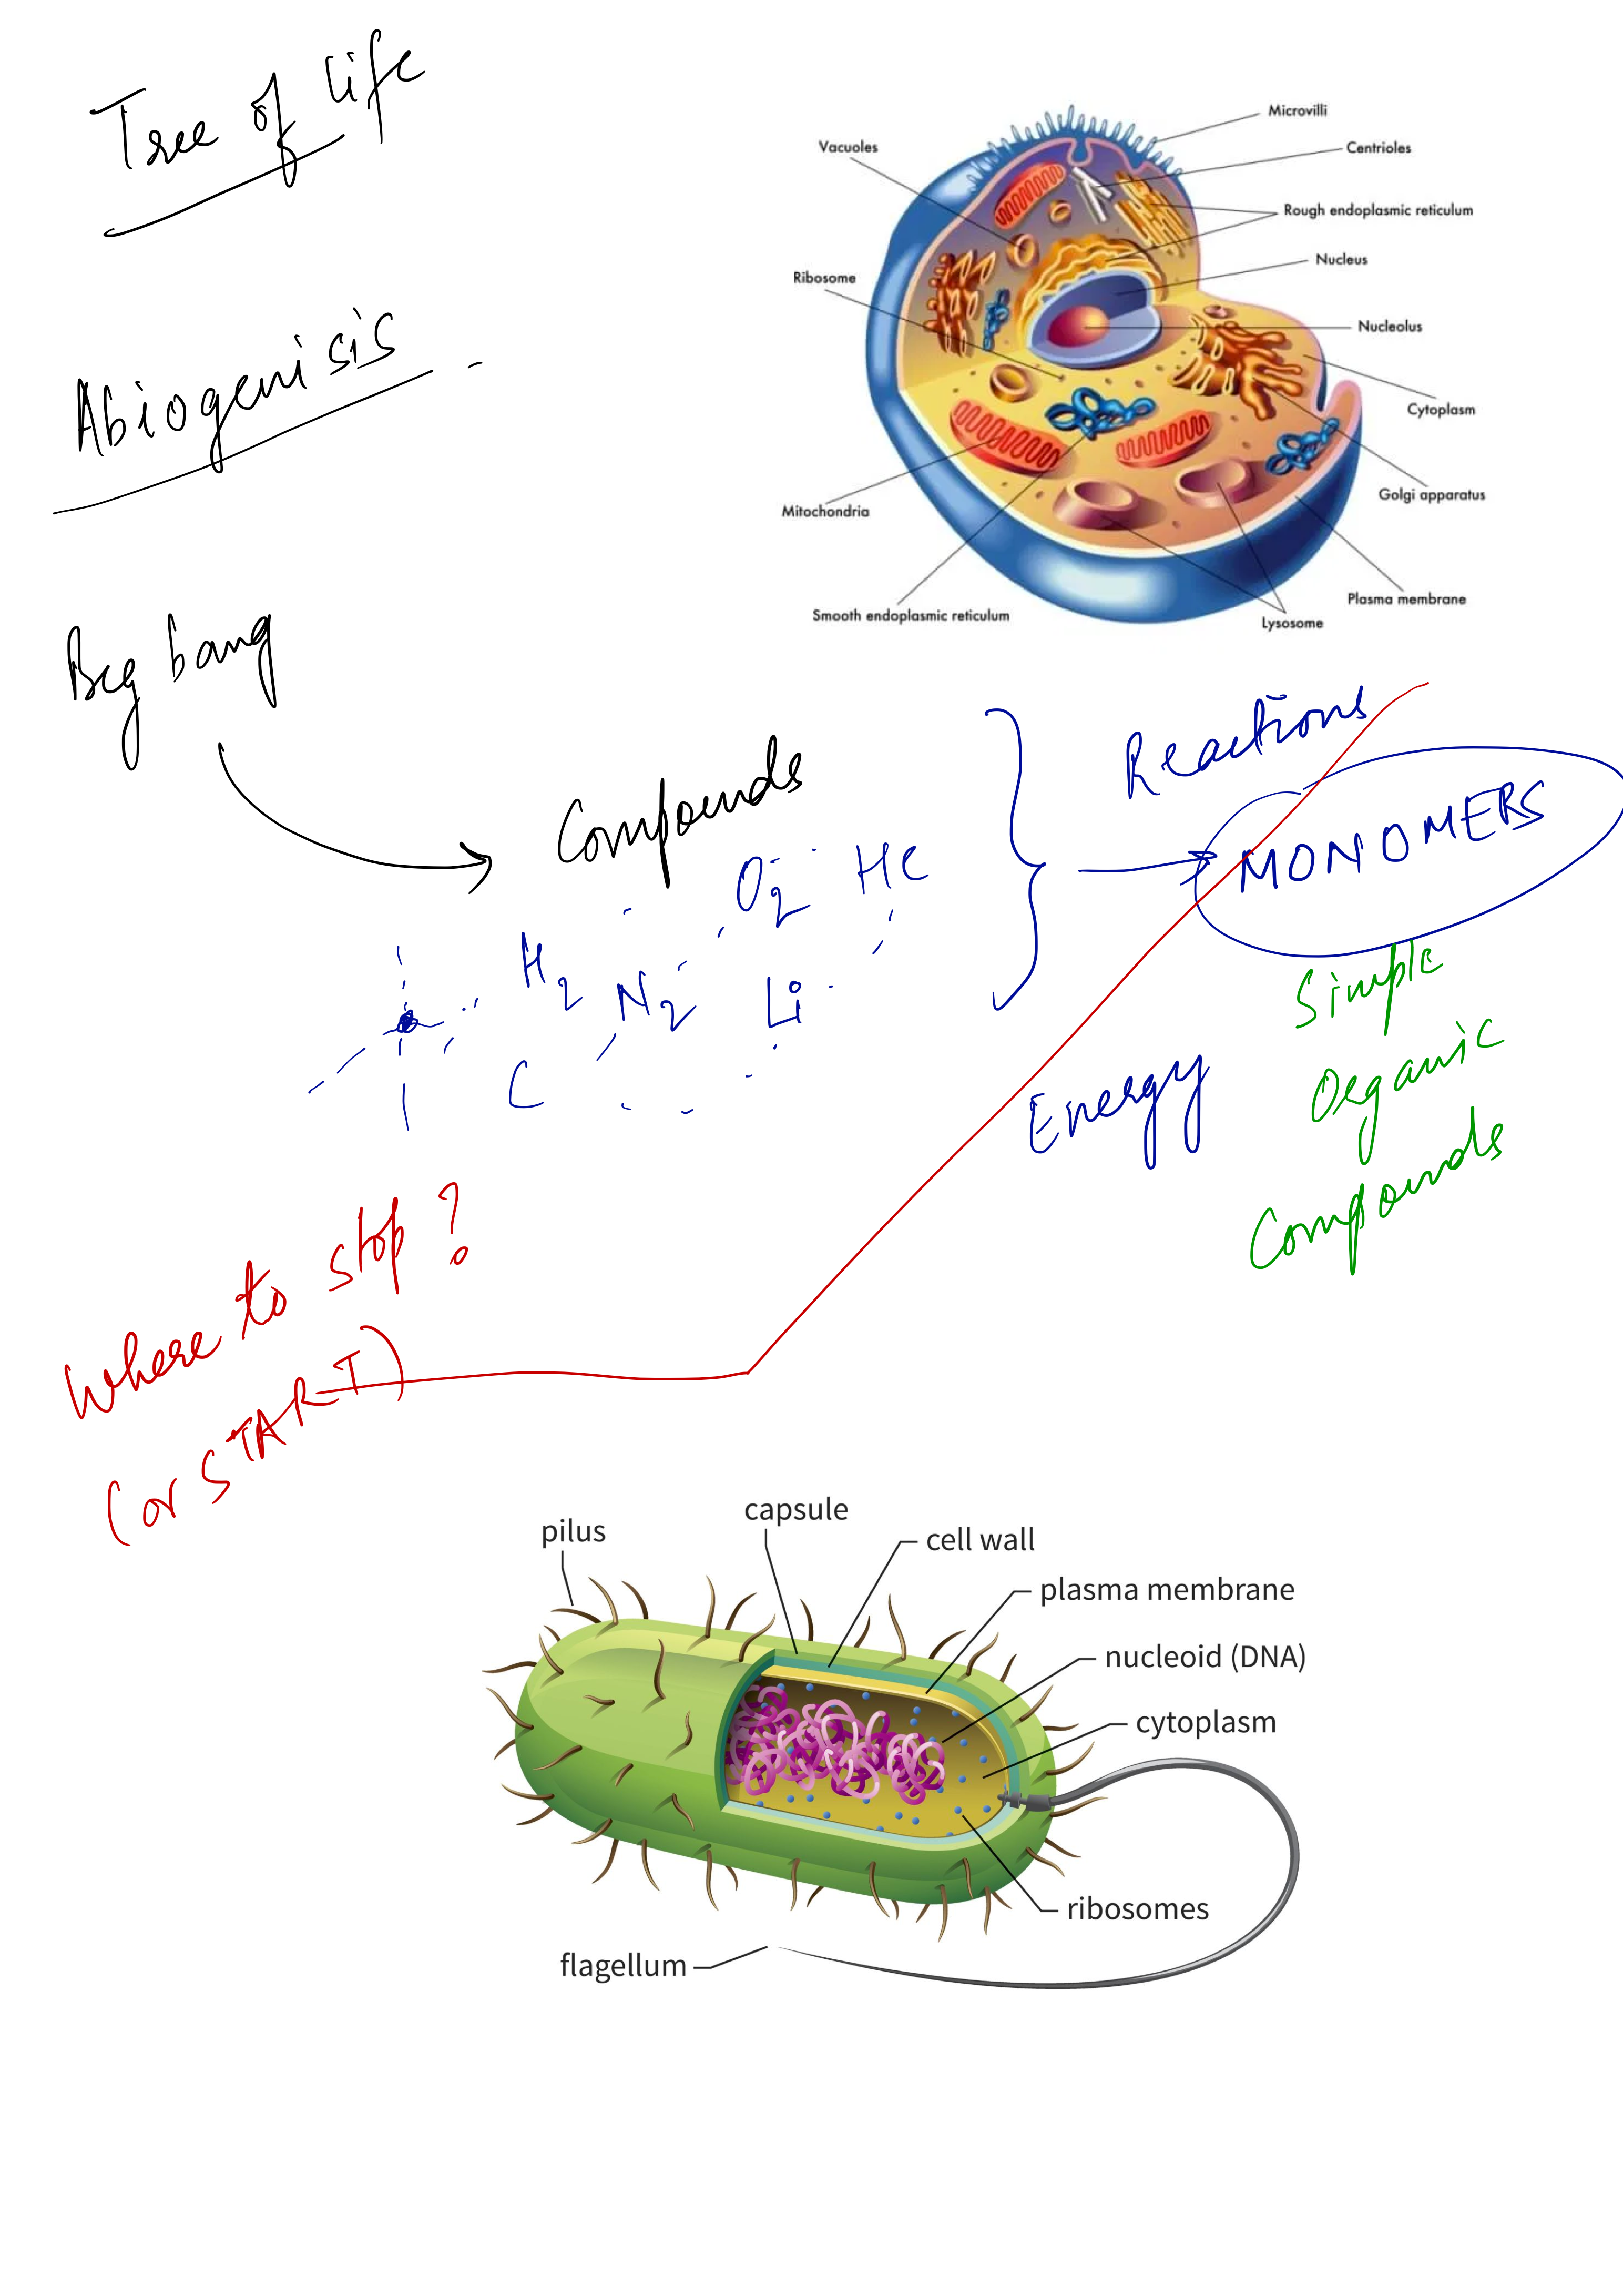 Tree of life
Abiogenisis
Microvilli
Vacuoles
Centrioles
Rough endoplasmic reticulum
Nucleus
Ribosome
Nucleolus
Cytoplasm
Golgi apparatus
Mitochondria
Plasma membrane
Smooth endoplasmic reticulum
Lysosome
Big bang
Compounds
H2 N2 O2 He
C Li
Reactions
MONOMERS
Energy
Simple
Organic
Compounds
Where to stop?
(or START)
pilus
capsule
cell wall
plasma membrane
nucleoid (DNA)
cytoplasm
ribosomes
flagellum